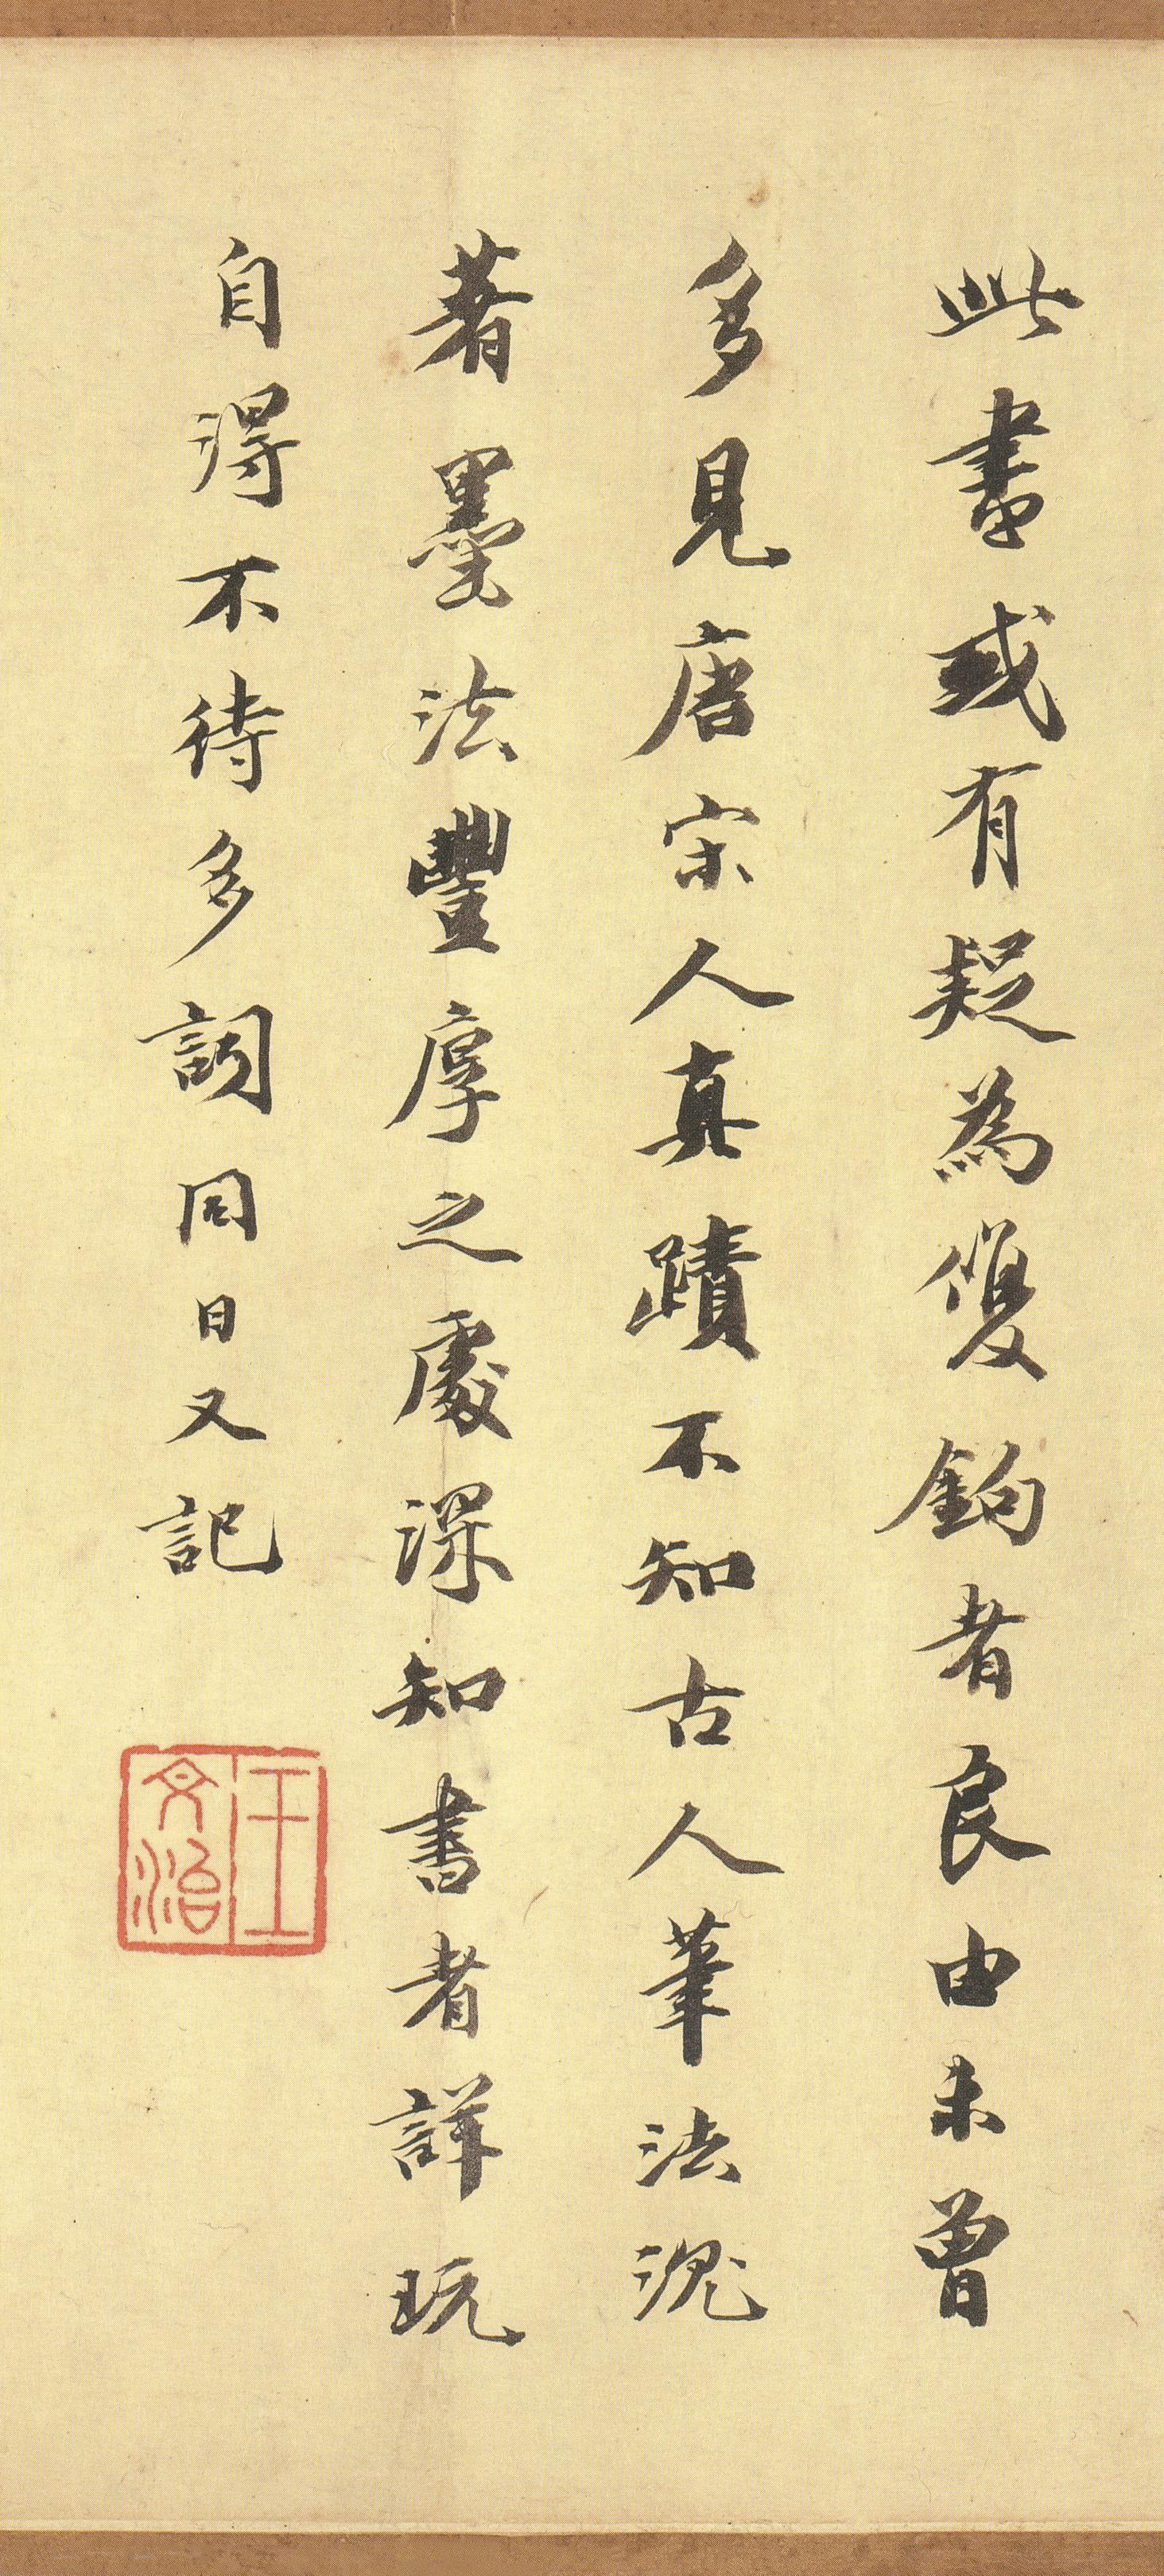 此書或有疑為雙鉤者良由未曾
多見唐宋人真蹟不知古人筆法沉
著墨法豐厚之處深知書者詳玩
自得不待多詞同日又記
王文治